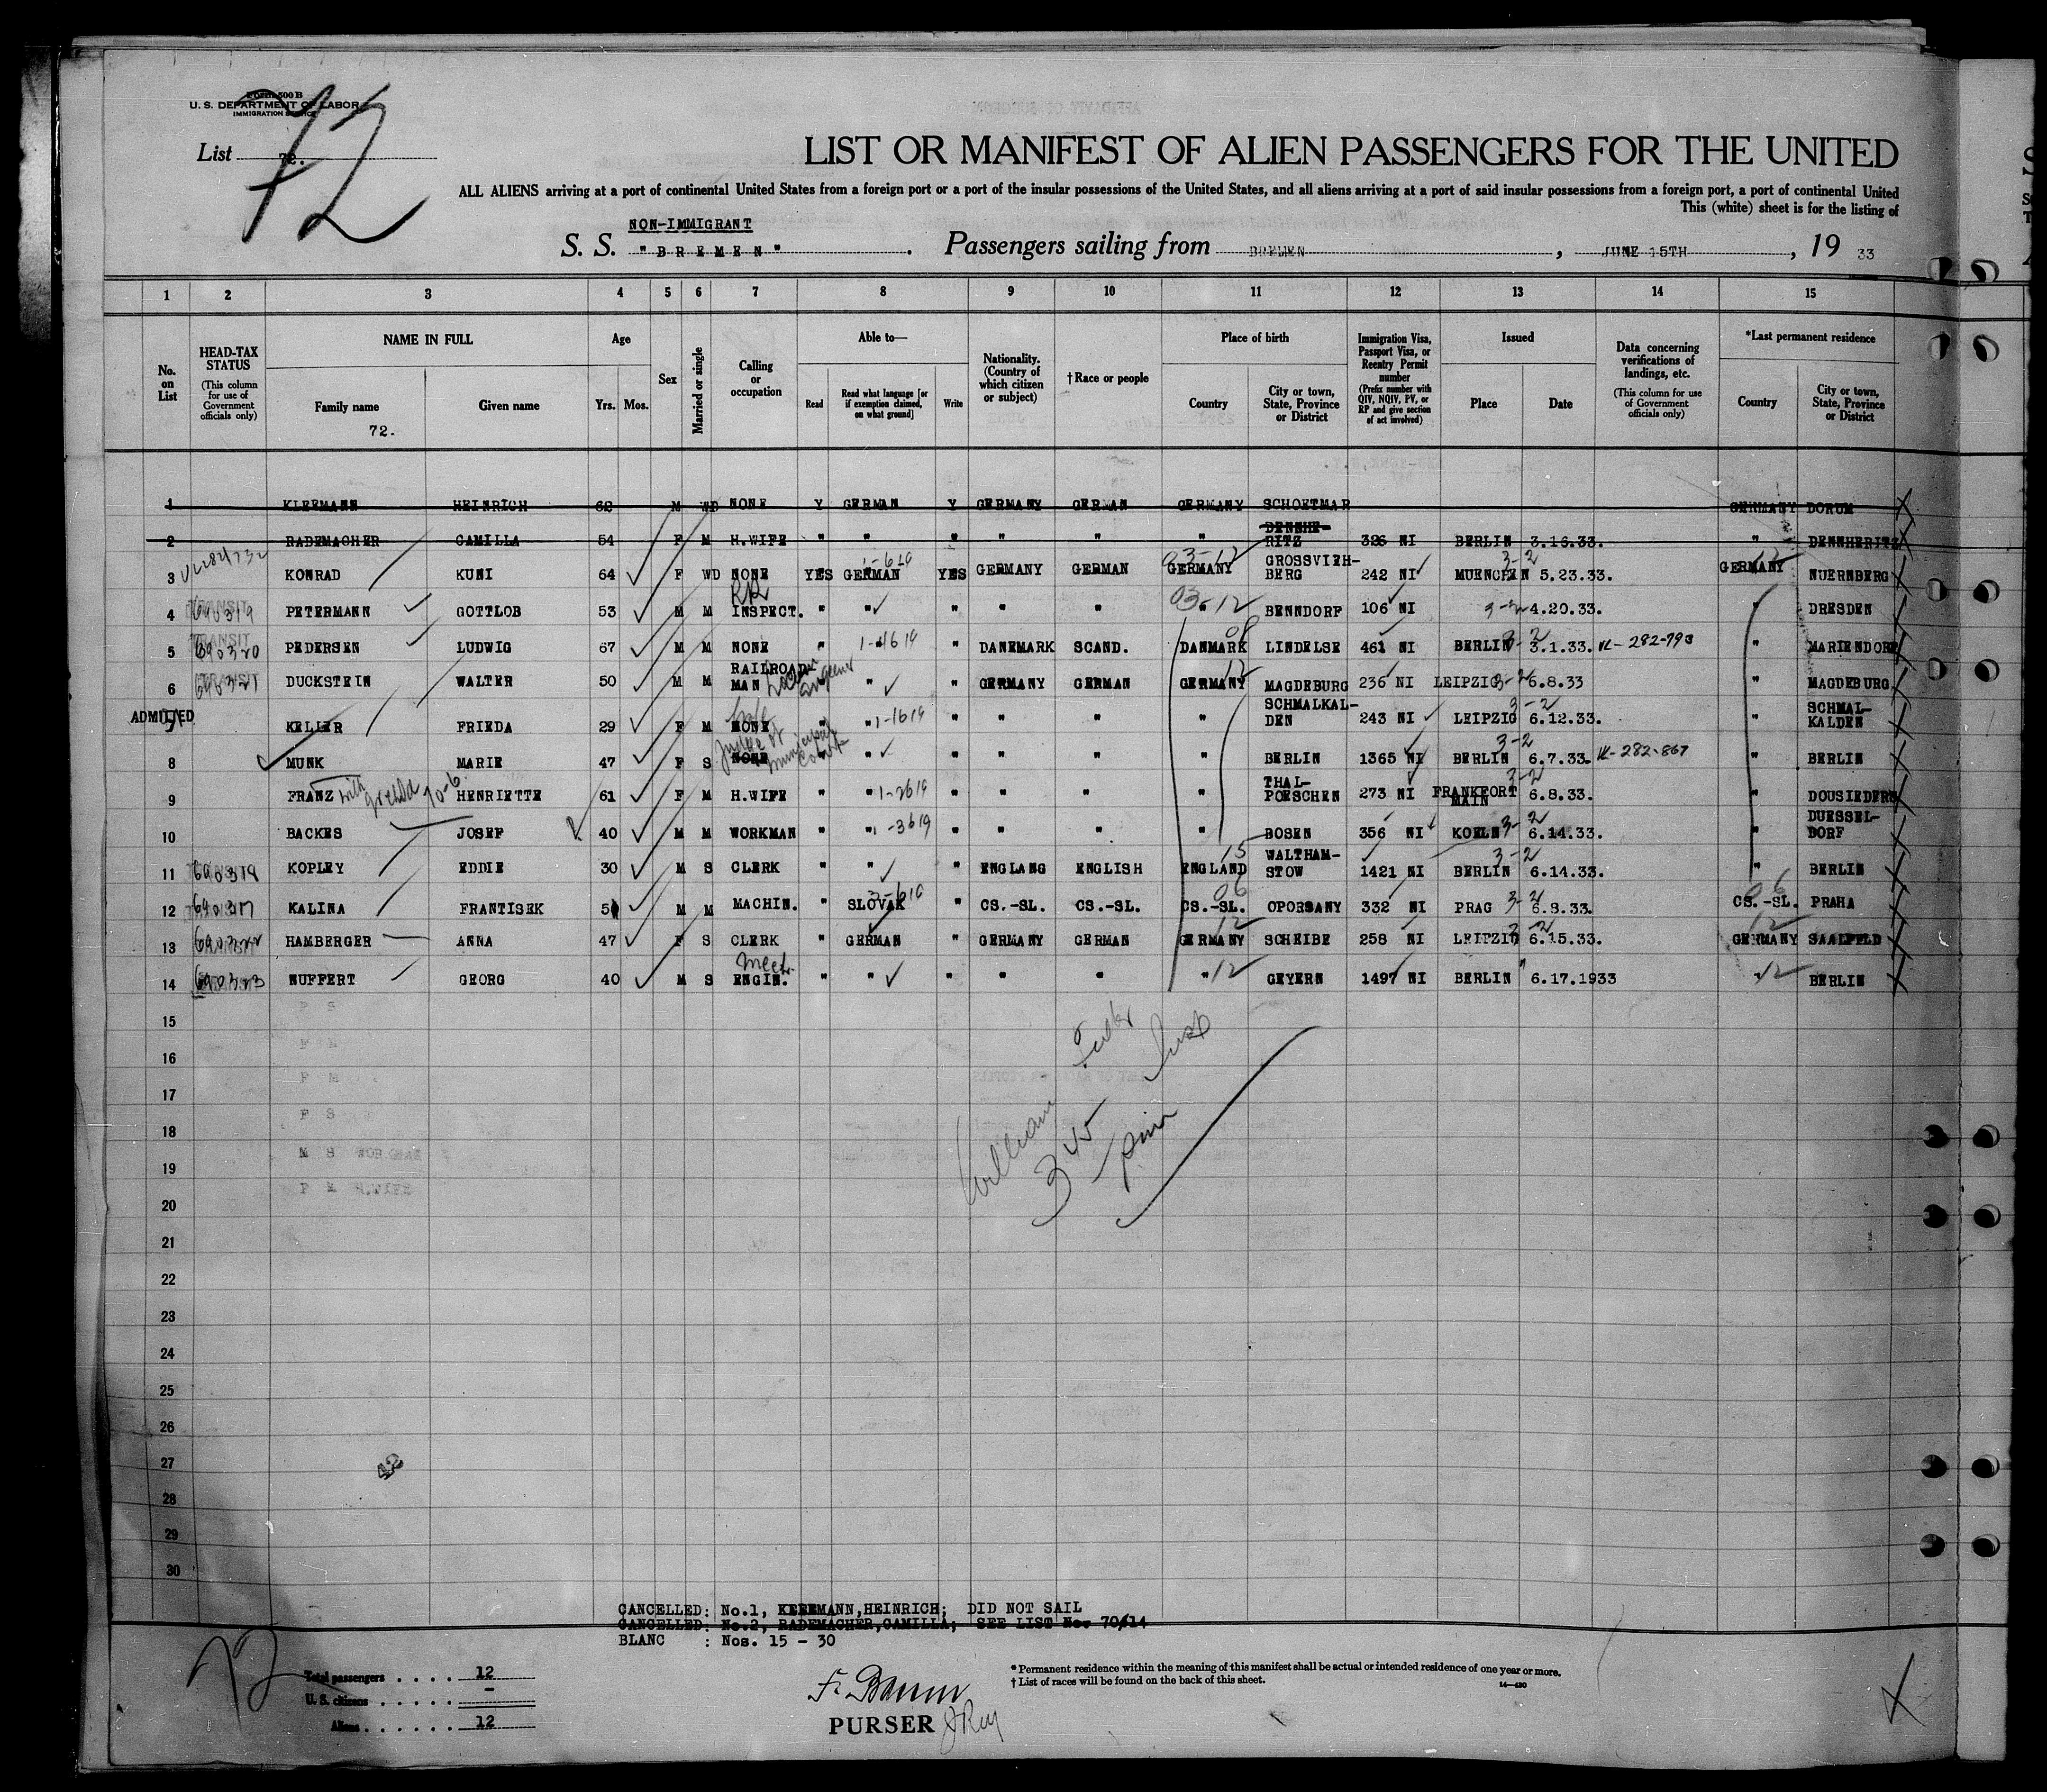 Form 500 B
U. S. DEPARTMENT OF LABOR
IMMIGRATION SERVICE
72
List 72.
LIST OR MANIFEST OF ALIEN PASSENGERS FOR THE UNITED
ALL ALIENS arriving at a port of continental United States from a foreign port or a port of the insular possessions of the United States, and all aliens arriving at a port of said insular possessions from a foreign port, a port of continental United
This (white) sheet is for the listing of
NON-IMMIGRANT
S. S. "BREMEN". Passengers sailing from BREMEN, JUNE 15TH, 19 33
1 2 3 4 5 6 7 8 9 10 11 12 13 14 15
No. on List
HEAD-TAX STATUS (This column for use of Government officials only)
NAME IN FULL
Family name
72.
Given name
Age
Yrs. Mos.
Sex
Married or single
Calling or occupation
Able to—
Read
Read what language [or if exemption claimed, on what ground]
Write
Nationality. (Country of which citizen or subject)
†Race or people
Place of birth
Country
City or town, State, Province or District
Immigration Visa, Passport Visa, or Reentry Permit number (Prefix number with QIV, NQIV, PV, or RP and give section of act involved)
Issued
Place
Date
Data concerning verifications of landings, etc. (This column for use of Government officials only)
*Last permanent residence
Country
City or town, State, Province or District
1 KLEEMANN HEINRICH 62 M WD NONE Y GERMAN Y GERMANY GERMAN GERMANY SCHOETMAR GERMANY DORUM
2 RADEMACHER CAMILLA 54 F M H.WIFE " " " " " " DENNHE-RITZ 326 NI BERLIN 3.16.33. " DENNHERITZ
3 KONRAD KUNI 64 F WD NONE YES GERMAN YES GERMANY GERMAN GERMANY 03-12 GROSSVIEH-BERG 242 NI MUENCHEN 3-2 5.23.33. GERMANY 12 NUERNBERG
4 TRANSIT 690319 PETERMANN GOTTLOB 53 M M RR INSPECT. " " " " " 03-12 BENNDORF 106 NI 3-2 4.20.33. " DRESDEN
5 TRANSIT 690320 PEDERSEN LUDWIG 67 M M NONE " " DANEMARK SCAND. DANMARK 08 LINDELSE 461 NI BERLIN 3-2 3.1.33. V-282-793 " MARIENDORF
6 TRANSIT 690321 DUCKSTEIN WALTER 50 M M RAILROAD MAN " " " GERMANY GERMAN GERMANY 12 MAGDEBURG 236 NI LEIPZIG 3-2 6.8.33 " MAGDEBURG
ADMITTED
KELLER FRIEDA 29 F M NONE " " " " " " SCHMALKAL-DEN 243 NI LEIPZIG 3-2 6.12.33. " SCHMAL-KALDEN
8 MUNK MARIE 47 F S NONE Judge at Municipal Court " " " " " " BERLIN 1365 NI BERLIN 3-2 6.7.33. V-282-867 " BERLIN
9 FRANZ with HENRIETTE 61 F M H.WIFE " " " " " " THAL-POESCHEN 273 NI FRANKFORT MAIN 3-2 6.8.33. " DOUSIEDERS
10 BACKES JOSEF 40 M M WORKMAN " " " " " " BOSEN 356 NI KOELN 3-2 6.14.33. " DUESSEL-DORF
11 690318 KOPLEY EDDIE 30 M S CLERK " " ENGLANG ENGLISH ENGLAND 15 WALTHAM-STOW 1421 NI BERLIN 3-2 6.14.33. " BERLIN
12 690317 KALINA FRANTISEK M M MACHIN. " SLOVAK " CS.-SL. CS.-SL. CS.-SL. 06 OPORSANY 332 NI PRAG 3-2 6.8.33. CS.-SL. 06 PRAHA
13 690322 HAMBERGER ANNA 47 F S CLERK " GERMAN " GERMANY GERMAN GERMANY 12 SCHEIBE 258 NI LEIPZIG 3-2 6.15.33. GERMANY 12 SAALFELD
14 690323 WUFFERT GEORG 40 M S Mech. ENGIN. " " " " " " 12 GEYERN 1497 NI BERLIN 6.17.1933 " 12 BERLIN
15
16
17
18
19
20
21
22
23
24
25
26
27
28
29
30
William
345
42
CANCELLED: No.1, KLEEMANN,HEINRICH; DID NOT SAIL
CANCELLED: No.2, RADEMACHER,CAMILLA; SEE LIST No. 70/14
BLANC : Nos. 15 - 30
72
Total passengers . . . . 12
U. S. citizens . . . . . -
Aliens . . . . . . 12
F. Baum
PURSER
* Permanent residence within the meaning of this manifest shall be actual or intended residence of one year or more.
† List of races will be found on the back of this sheet.
14—430